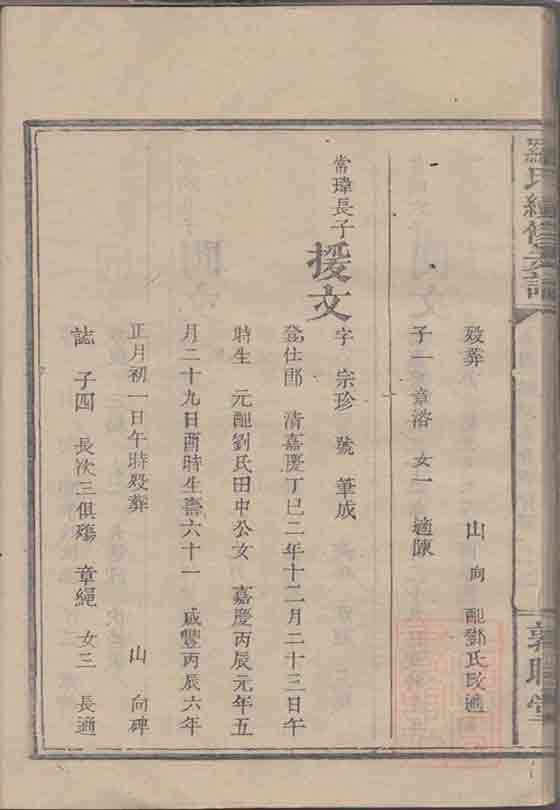 羅氏續修宗譜
敦睦堂
歿葬 山 向 配鄧氏改適
子一 章洛 女一 適陳
常瑋長子 援文 字 宗珍 號 筆成
登仕郎 清嘉慶丁巳二年十二月二十三日午
時生 元配劉氏田中公女 嘉慶丙辰元年五
月二十九日酉時生壽六十一 咸豐丙辰六年
正月初一日午時歿葬 山 向碑
誌 子四 長次三俱殤 章繩 女三 長適